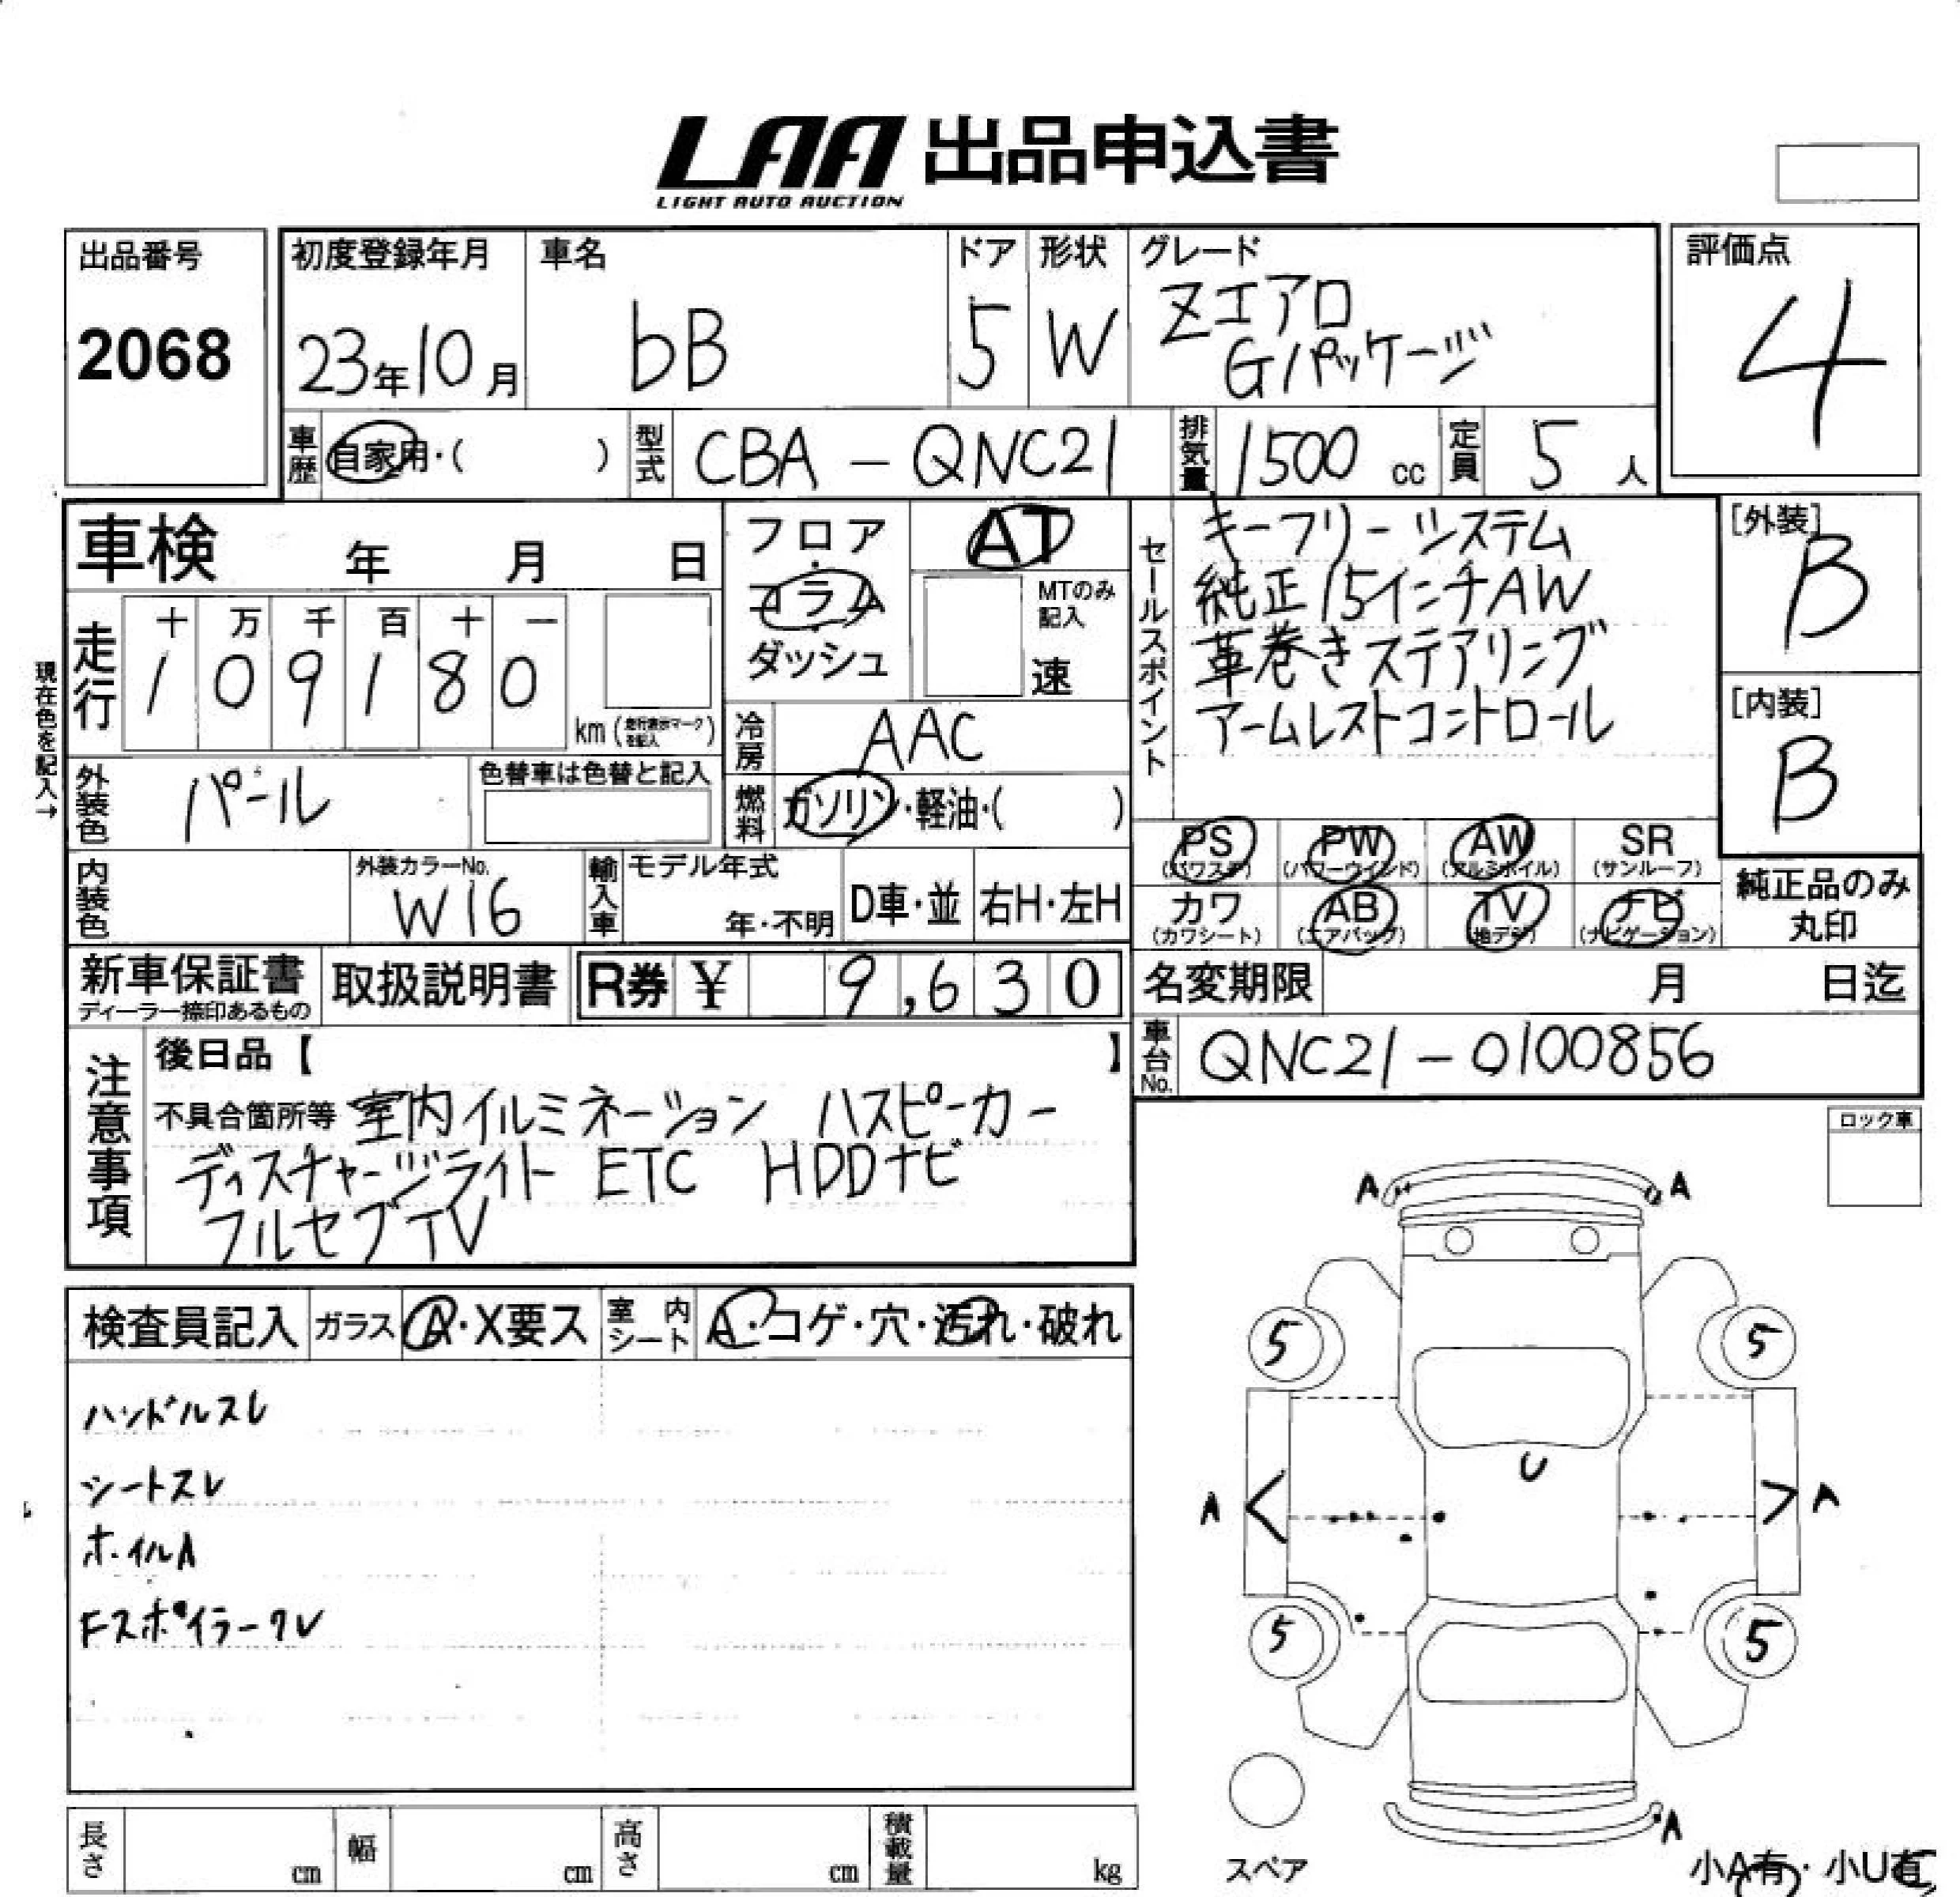 LAA 出品申込書
LIGHT AUTO AUCTION
出品番号
2068
初度登録年月
23年10月
車名
bB
ドア
5
形状
W
グレード
Zエアロ
Gパッケージ
評価点
4
車歴
自家用・( )
型式
CBA - QNC21
排気量
1500 cc
定員
5 人
車検 年 月 日
現在色を記入→
走行
十 万 千 百 十 一
1 0 9 1 8 0
km (走行表示マークを記入)
フロア
・
コラム
・
ダッシュ
AT
MTのみ
記入
速
冷房
AAC
燃料
ガソリン・軽油・( )
セールスポイント
キーフリーシステム
純正15インチAW
革巻きステアリング
アームレストコントロール
[外装]
B
[内装]
B
外装色
パール
色替車は色替と記入
内装色
外装カラーNo.
W16
輸入車
モデル年式
年・不明
D車・並
右H・左H
PS
(パワステ)
PW
(パワーウインド)
AW
(アルミホイル)
SR
(サンルーフ)
カワ
(カワシート)
AB
(エアバッグ)
TV
(地デジ)
ナビ
(ナビゲーション)
純正品のみ
丸印
新車保証書
ディーラー捺印あるもの
取扱説明書
R券 ¥ 9,630
名変期限 月 日迄
車台No.
QNC21-0100856
注意事項
後日品【 】
不具合箇所等 室内イルミネーション ハスピーカー
ディスチャージライト ETC HDDナビ
フルセグTV
ロック車
検査員記入
ガラス
A・X要ス
室内シート
A・コゲ・穴・汚れ・破れ
ハンドルスレ
シートスレ
ホイルA
Fスポイラーワレ
A A
5 5
U
A A
5 5
A
スペア
小A有・小U有
長さ cm
幅 cm
高さ cm
積載量 kg